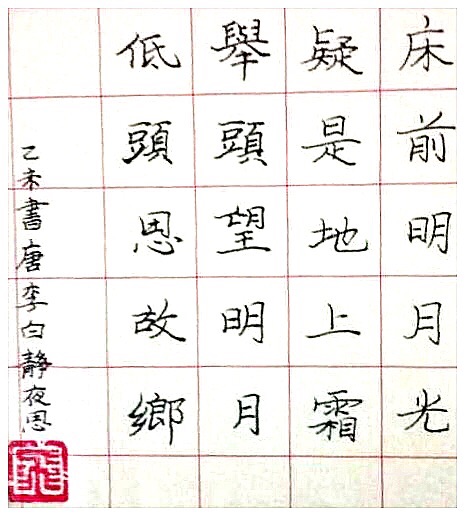 床前明月光
疑是地上霜
舉頭望明月
低頭思故鄉
乙未書唐李白靜夜思